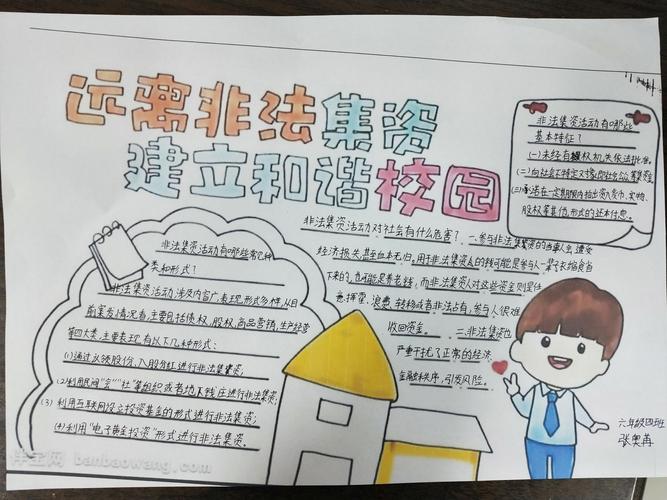 远离非法集资
建立和谐校园
非法集资活动有哪些
基本特征?
(一)未经有关权机关依法批准,
(二)向社会不特定对象
(三)承诺在一定期限内给出资人货币、实物、
股权等其他形式的还本付息。
非法集资活动对社会有什么危害? 一、参与非法集资的当事人会遭受
经济损失,甚至血本无归,用于非法集资人的钱可能是参与人一辈子节衣缩食省
下来的,也可能是养老钱,而非法集资人对这些资金则是任
意挥霍、浪费、转移或者非法占有,参与人很难
收回资金。 二、非法集资也
严重干扰了正常的经济、
金融秩序,引发风险。
非法集资活动有哪些常见种
类和形式?
非法集资活动涉及内容广,表现形式多样,从目
前案发情况看,主要包括债权,股权,商品营销,生产经营
等四大类,主要表现有以下几种形式:
(1)通过认领股份、入股分红进行非法集资;
(2)利用民间“会”“社”等组织或者地下钱庄进行非法集资;
(3)利用互联网设立投资基金的形式进行非法集资;
(4)利用“电子黄金投资”形式进行非法集资。
六年级四班
张奥
伴宝网 banbaowang.com